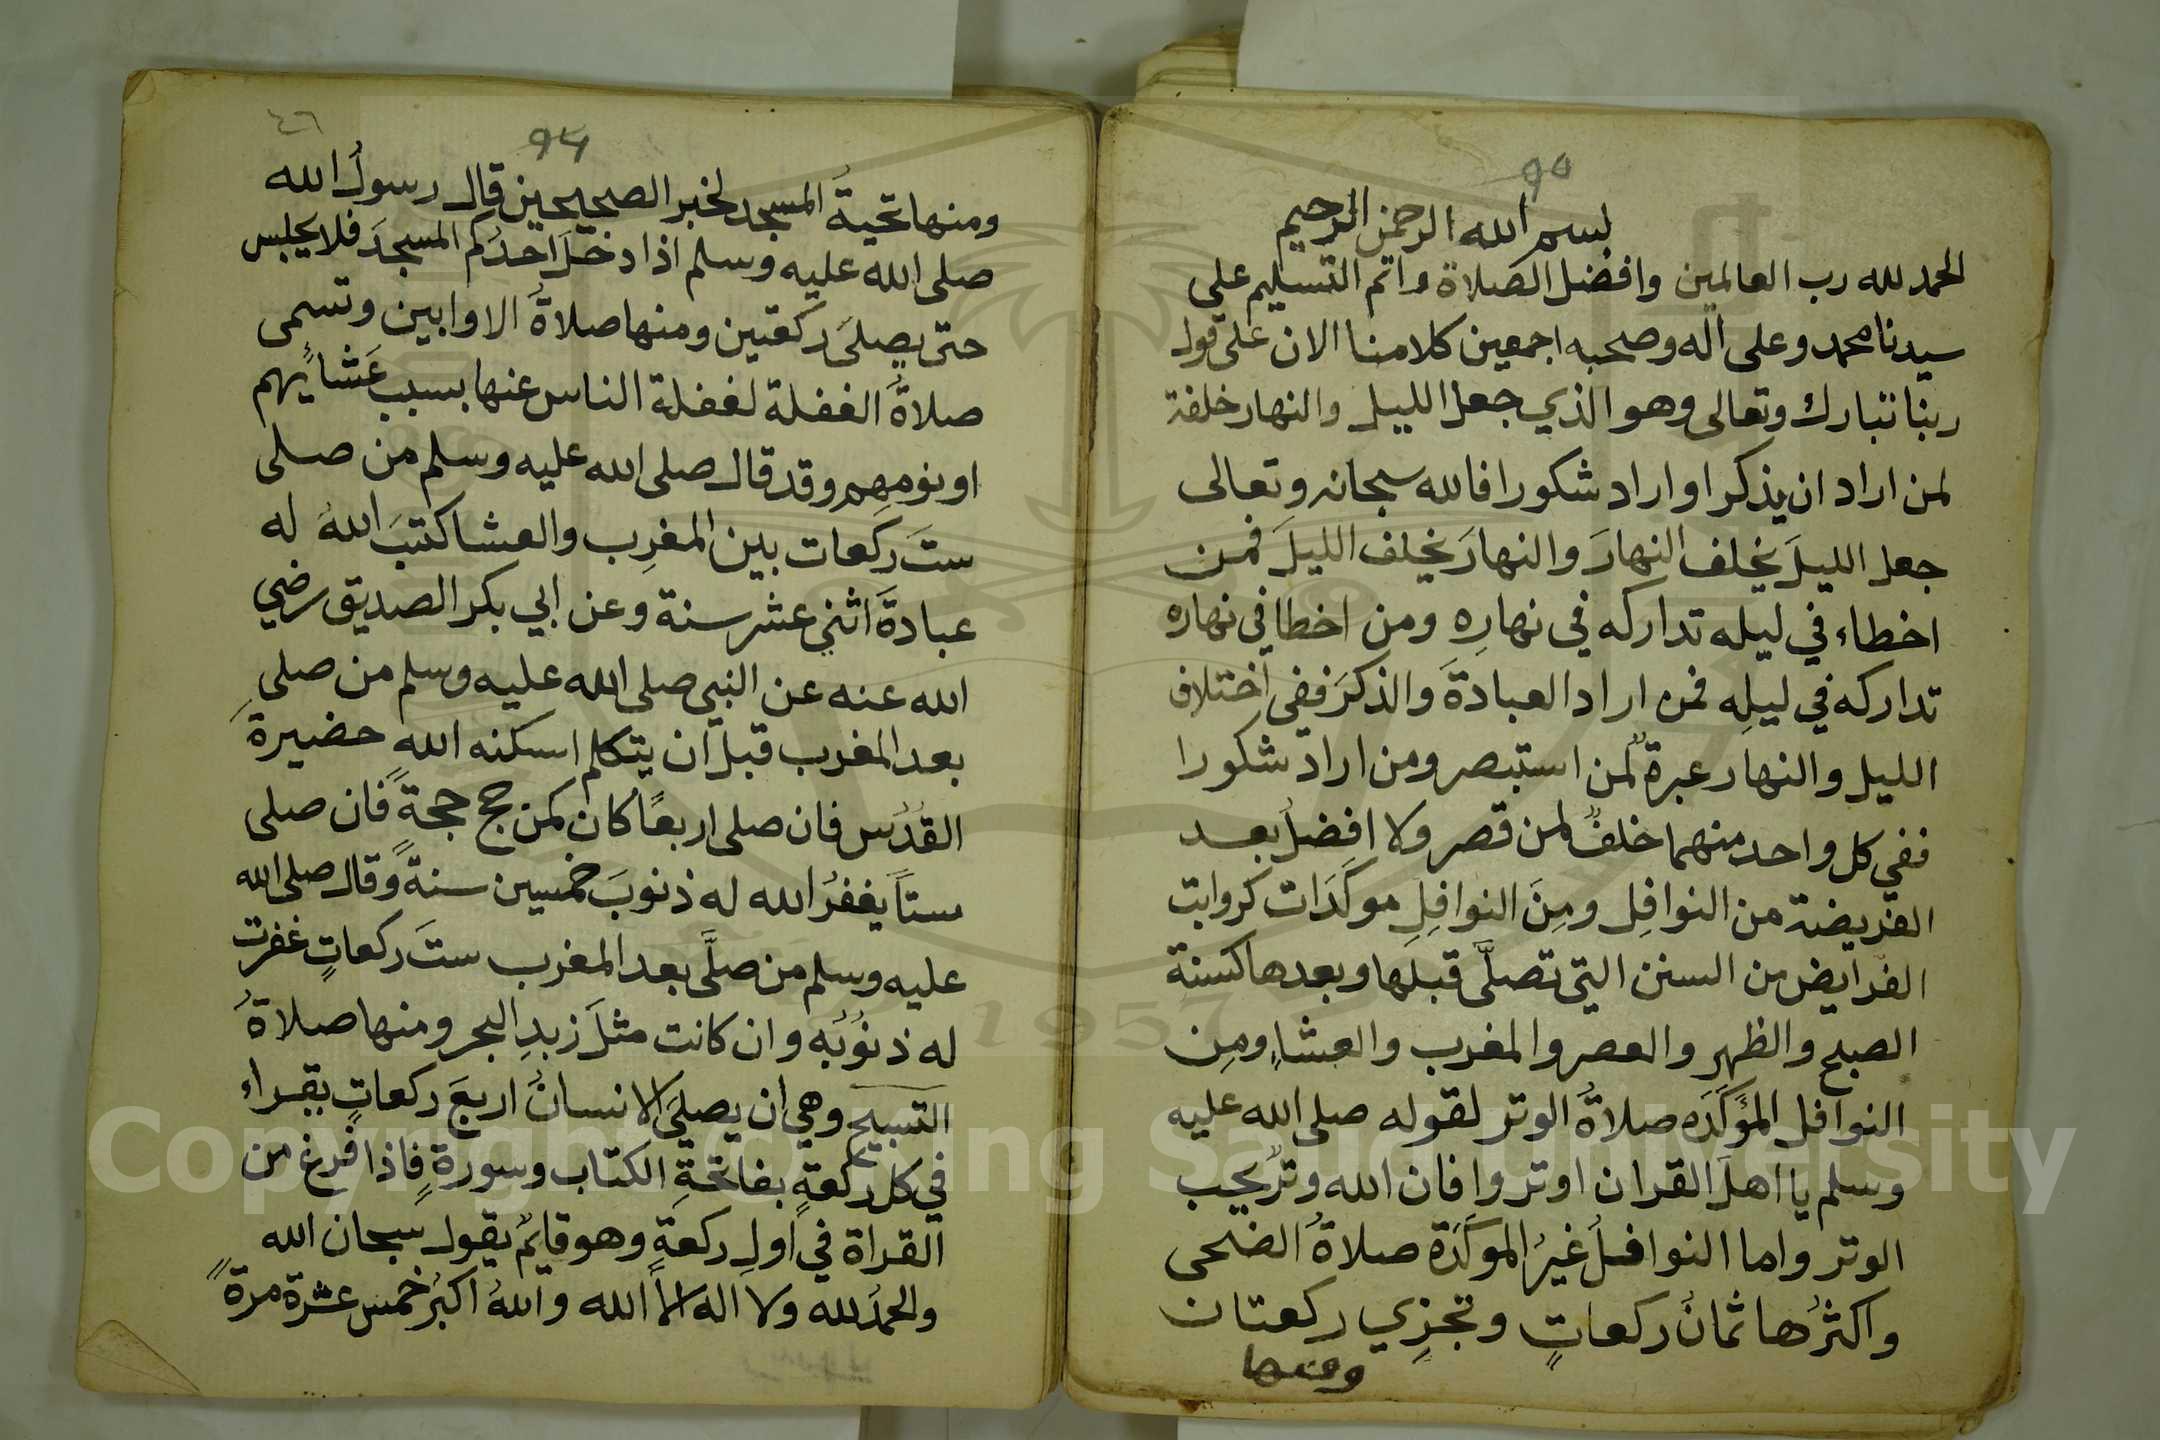 95
بسم الله الرحمن الرحيم
الحمد لله رب العالمين وافضل الصلاة واتم التسليم علي
سيدنا محمد وعلى آله وصحبه اجمعين كلامنا الان على قول
ربنا تبارك وتعالى وهو الذي جعل الليل والنهار خلفة
لمن اراد ان يذكر او اراد شكورا فالله سبحانه وتعالى
جعل الليلَ يخلف النهارَ والنهارَ يخلف الليلَ فمن
اخطاء في ليله تداركه في نهارِه ومن اخطا في نهاره
تداركه في ليلِه فمن اراد العبادةَ والذكرَ ففي اختلاف
الليل والنهار عبرةٌ لمن استبصر ومن اراد شكورا
ففي كل واحد منهما خلفٌ لمن قصر ولا افضلُ بعد
الفريضة من النوافِل ومِنَ النوافِلِ موكَدَات كرواتب
الفرايض من السنن التي تصلَّى قبلها وبعدها كسنة
الصبح والظهرِ والعصر والمغرب والعشاءِ ومِن
النوافل المؤكَدَه صلاةُ الوتر لقوله صلى الله عليه
وسلم يا اهلَ القران اوتروا فان الله وترٌ يحب
الوتر واما النوافلُ غيرُ الموكَدَة صلاةُ الضحى
واكثرُها ثمانُ ركعاتٍ وتجزِي ركعتان
ومنها
٤٦
94
ومنها تحيةُ المسجد لخبر الصحيحين قال رسولُ الله
صلى الله عليه وسلم اذا دخلَ احدُكم المسجدَ فلا يجلس
حتى يصلىَ ركعتين ومنها صلاةُ الاوابين وتسمى
صلاةُ الغفلة لغفلة الناس عنها بسبب عَشايِهم
او نومِهِم وقد قال صلى الله عليه وسلم من صلى
ستَ ركعات بين المغرِب والعشا كتبَ اللهُ له
عبادةَ اثني عشر سنة وعن ابي بكر الصديق رضي
الله عنه عن النبي صلى الله عليه وسلم من صلى
بعد المغرب قبل ان يتكلم اسكنه الله حضيرةَ
القدُس فان صلى اربعًا كان كمن حج حجةً فان صلى
ستاً يغفرُ الله له ذنوبَ خمسين سنةً وقال صلى الله
عليه وسلم من صلَّى بعد المغرب ستَ ركعاتٍ غفرت
له ذنوُبُه وان كانت مثلَ زبدِ البحر ومنها صلاةُ
التسبيح وهي ان يصليَ الانسانُ اربعَ ركعاتٍ يقراء
في كل ركعةٍ بفاتحةِ الكتاب وسورةٍ فاذا فرغ من
القراة في اولِ ركعةٍ وهو قايمٌ يقول سبحان الله
والحمدُ لله ولا اله الا الله واللهُ اكبرُ خمس عشرة مرةً
Copyright © King Saud University
1957